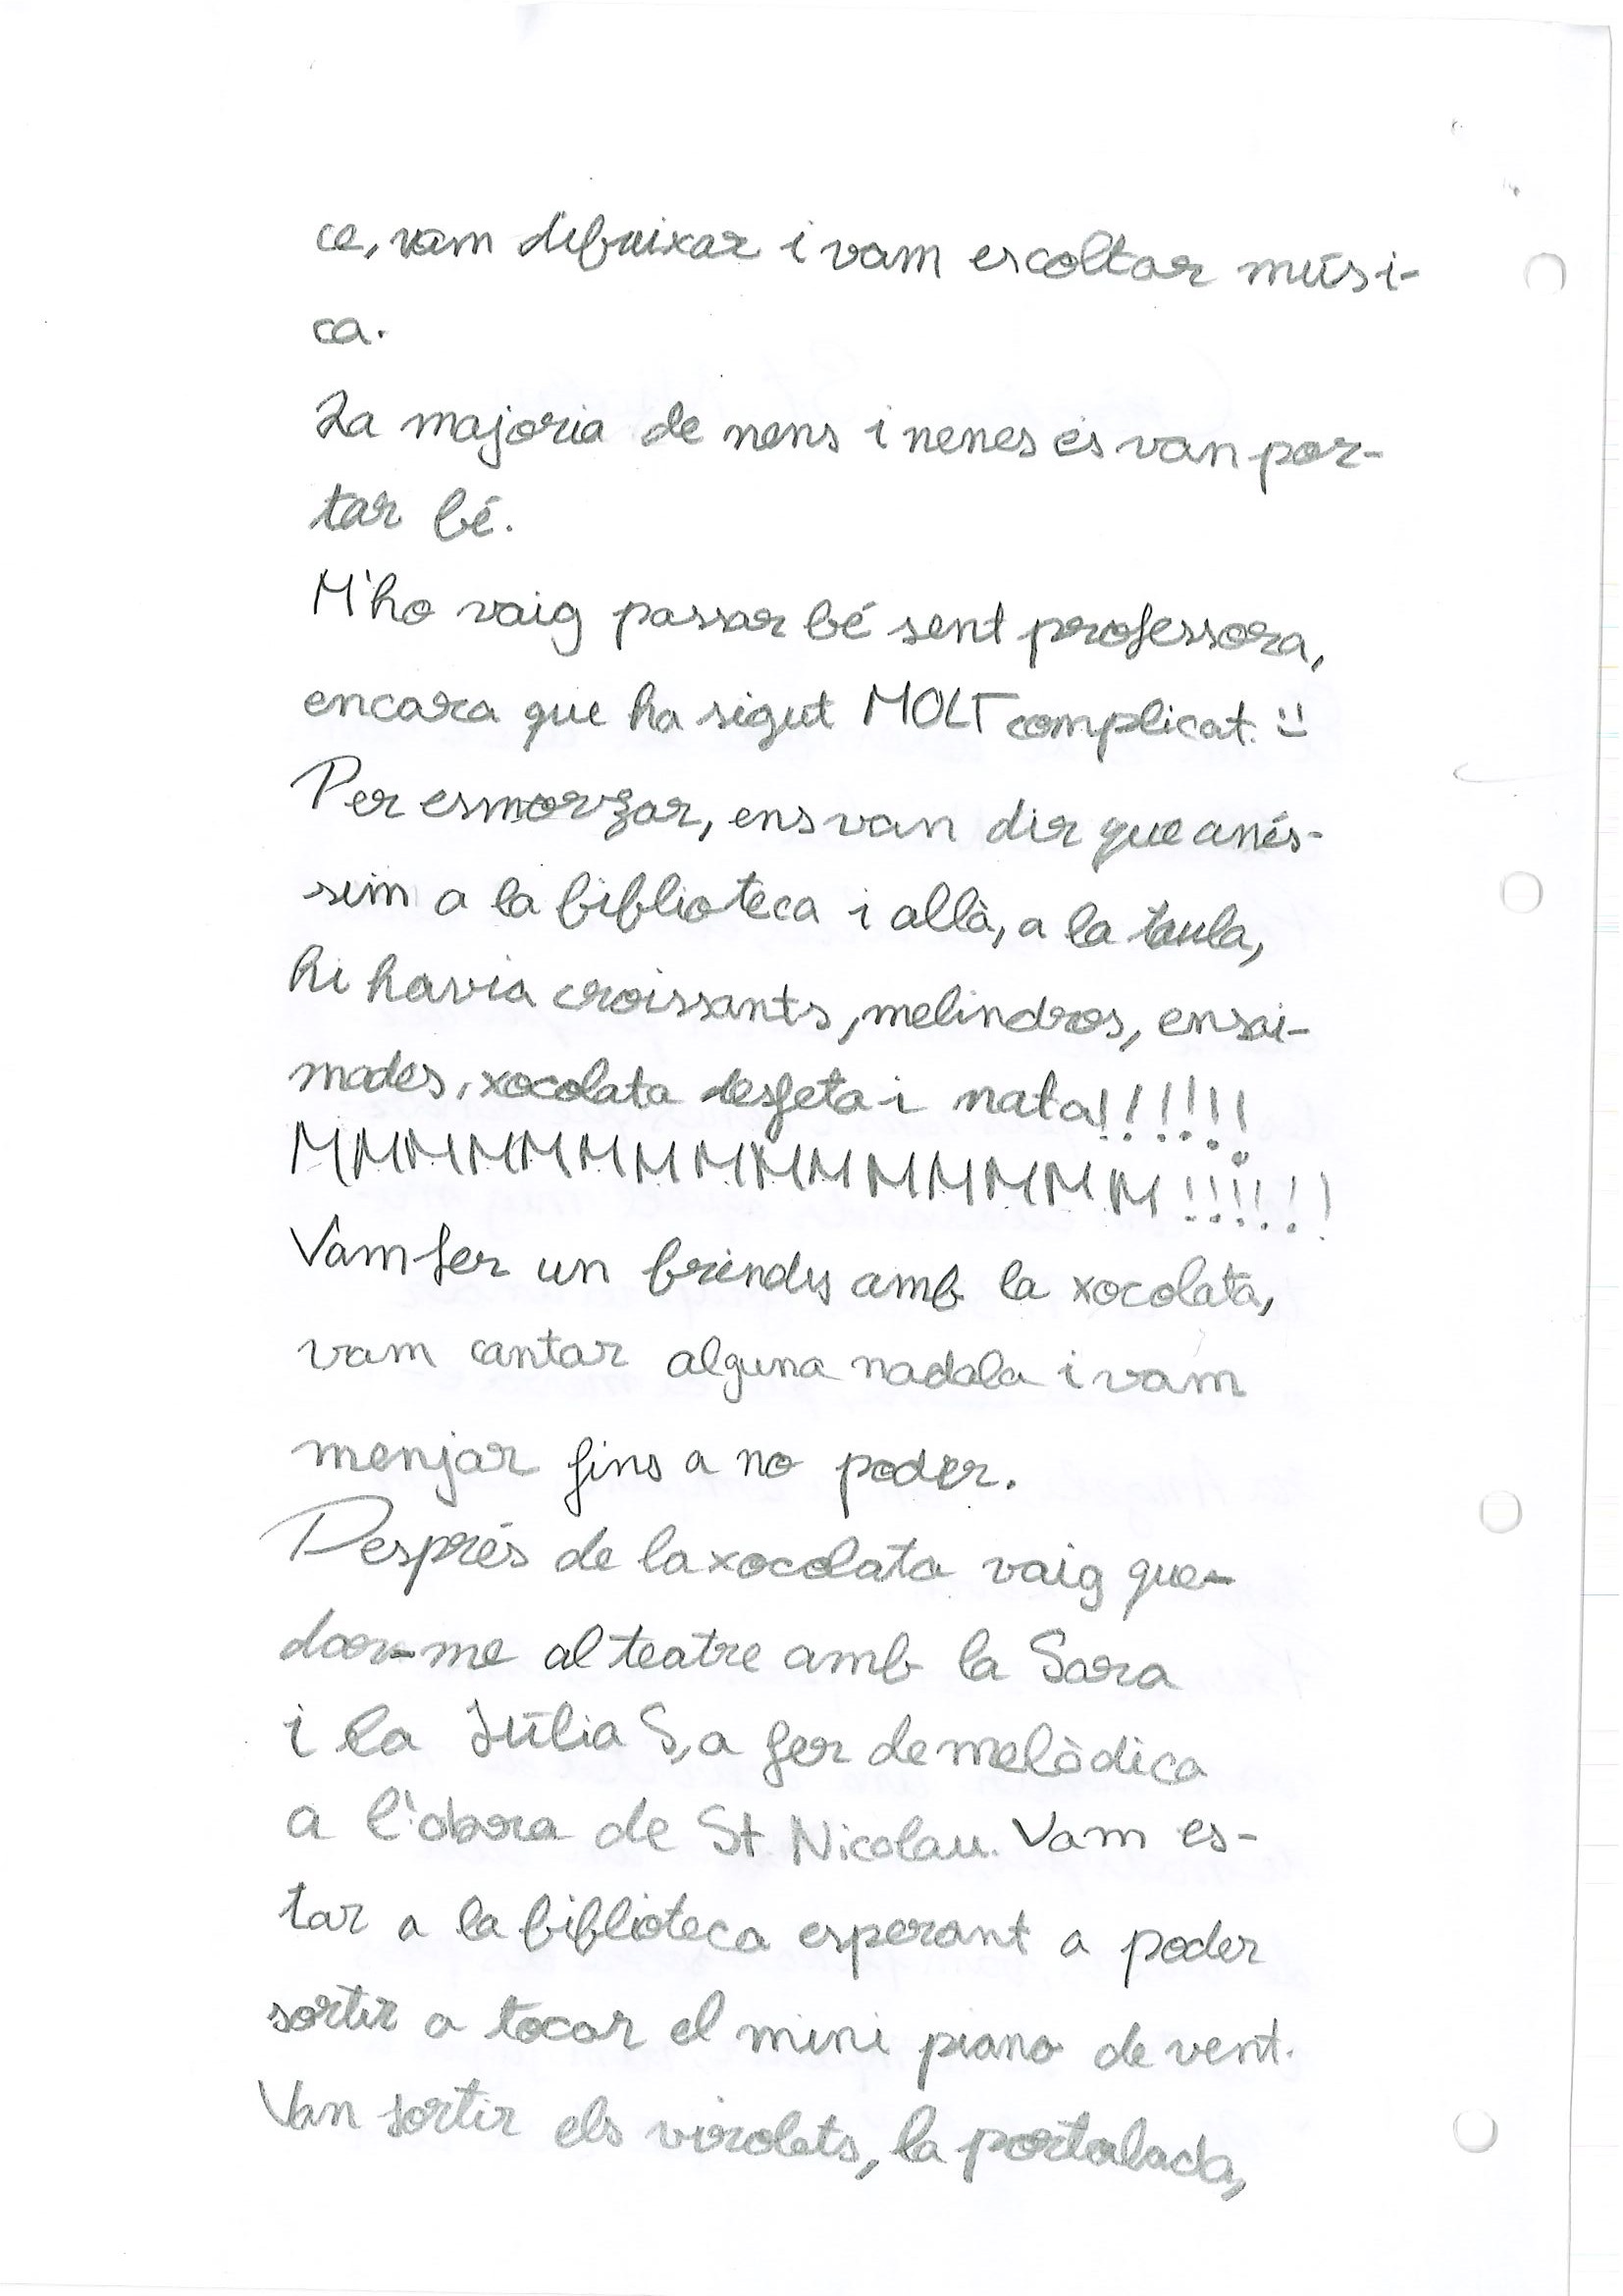 ce, vam dibuixar i vam escoltar músi-
ca.
La majoria de nens i nenes es van por-
tar bé.
M'ho vaig passar bé sent professora,
encara que ha sigut MOLT complicat. :)
Per esmorzar, ens van dir que anés-
sim a la biblioteca i allà, a la taula,
hi havia croissants, melindros, ensai-
mades, xocolata desfeta i nata!!!!!!
MMMMMMMMMMMMMMM!!!!!!
Vam fer un brindis amb la xocolata,
vam cantar alguna nadala i vam
menjar fins a no poder.
Després de la xocolata vaig que-
dar-me al teatre amb la Sara
i la Júlia S, a fer de melòdica
a l'obra de St. Nicolau. Vam es-
tar a la biblioteca esperant a poder
sortir a tocar el mini piano de vent.
Van sortir els virolets, la portalada,